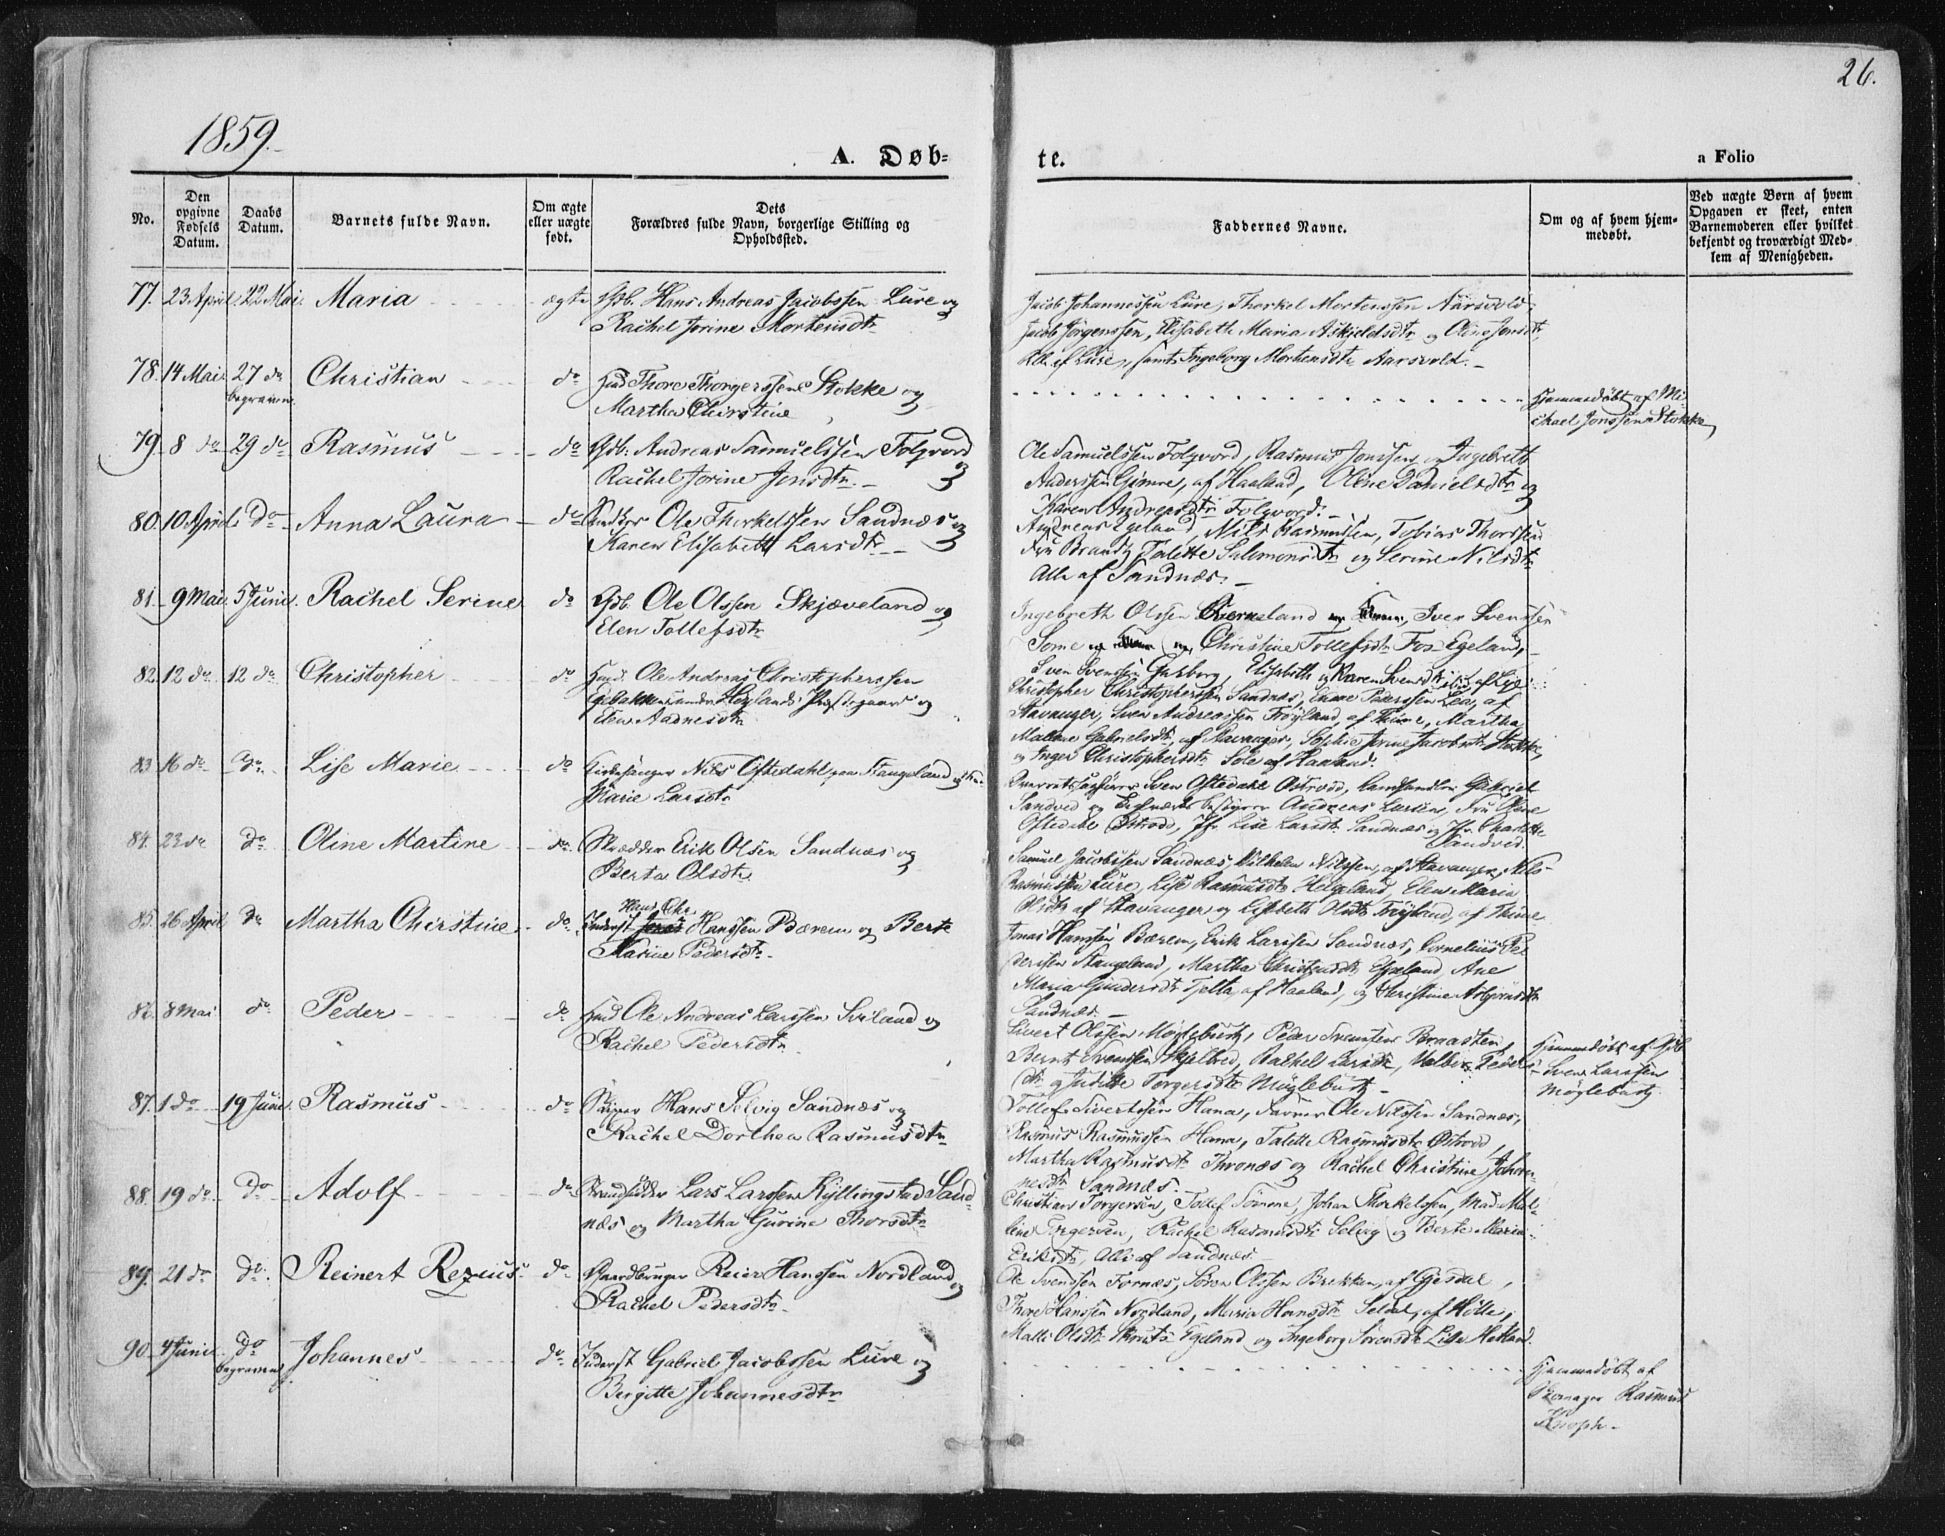 26.
1859.
A. Døb-
te.
a Folio
No.
Den opgivne Fødsels Datum.
Daabs Datum.
Barnets fulde Navn.
Om ægte eller uægte født.
Dets Forældres fulde Navn, borgerlige Stilling og Opholdssted.
Faddernes Navne.
Om og af hvem hjem-medøbt.
Ved uægte Børn af hvem Opgaven er skeet, enten Barnemoderen eller hvilket bekjendt og troværdigt Med-lem af Menigheden.
77. 23 April 22 Mai Maria ægte Gdb. Hans Andreas Jacobssen Lure og
Rachel Jorine Mortensdtr
Jacob Johannessen Lure, Thorkel Mortenssen Aarsvold
Jacob Jørgenssen, Elisabeth Maria Askieldsdtr og Oline Jonsdtr,
Alle af Lure, samt Ingeborg Mortensdtr Aarsvold.
78. 14 Mai 27 do begraven Christian do Huusm. Thore Thorgerssen Stokke og
Martha Chirstine
Hjemmedøbt af Mi-
chael Jonssen Stokke
79. 8 do 29 do Rasmus do Gdb: Andreas Samuelssen Folqvord og
Rachel Jorine Jonsdtr.
Ole Samuelssen Folqvord, Rasmus Jonssen Ingebrett
Anderssen Gimre, af Haaland, Oline Danielsdtr og
Karen Andreasdtr Folqvord.
80. 10 April do Anna Laura do Ole Thorkelssen Sandnæs og
Karen Elisabeth Larsdtr
Andreas Egeland, Nils Rasmussen, Tobias Thorssen
Fru Brandt Talette Salomonsdtr og Serine Nilsdtr
Alle af Sandnæs.
81. 9 Mai 5 Juni Rachel Serine do Gdb. Ole Olssen Skjæveland og
Elen Tollefsdtr
Ingebreth Olssen land, Iver Svenssen
Some og Christine Tollefsdtr Fos-Egeland,
Sven Svenssen, Elisabeth og Karen Svensdtr af Lye
82. 12 do 12 do Christopher do Huusm. Ole Andreas Christopherssen
under Høylands Præstegaard og
Elen Aadnesdtr
Christopher Christopherssen Sandnæs, Pederssen Lea, af
Stavanger, Sven Andreassen Frøyland, af Thime, Martha
Malene Gabrielsdtr af Stavanger, Sophie Jorine Jacobsdtr Stokke,
og Inger Christophersdtr Sole af Haaland.
83. 16 do do Lise Marie do Kirkesanger Nils Oftedahl paa Stangeland og
Marie Larsdtr
Sven Oftedahl Østrvod, Landhandler Gabriel
Sandved og Andreas Larsen, Fru
Oftedahl Østrvod, Jfr. Lise Larsdtr Sandnæs og Jfr. Charlotte
Sandved.
84. 23 do do Oline Martine do Skrædder Erik Olsen Sandnæs og
Berta Olsdtr.
Samuel Jacobssen Sandnæs, Wilhelm Nilssen, af Stavanger, Nils
Rasmussen Lure, Lise Rasmusdtr Helgeland, Elen Maria
Olsdtr af Stavanger og Elisabeth Olsdtr Frøyland, af Thime
85. 26 April do Martha Chirstine do Inderst Hans Chr. Hanssen Bærem og Berte
Karine Pedersdtr
Jonas Hanssen Bærem, Erik Larssen Sandnæs, Cornelius Pe-
derssen Stangeland, Martha Christensdtr Egeland, Ane
Maria Gundersdtr Tjelta, af Haaland, og Christine Asbjørnsdtr
Sandnæs.
86. 8 Mai do Peder do Huusm. Ole Andreas Larssen Sviland og
Rachel Pedersdtr
Sivert Olssen Møglebust, Peder Svenssen Braasten
Bernt Svenssen Skjelbred, Rachel Larsdtr, Valborg Peders-
dtr og Juditte Torgersdtr Møglebust
Hjemmedøbt af Gdb.
Sven Larssen
Møglebust
87. 1 do 19 Juni Rasmus do Skipper Hans Selvig Sandnæs og
Rachel Dorthea Rasmusdtr
Tollef Sivertssen Hana, Farver Ole Nilssen Sandnæs,
Rasmus Rasmussen Hana, Talette Rasmusdtr Østrvod,
Martha Rasmusdtr Thronæs og Rachel Christine Johan-
nesdtr Sandnæs.
88. 19 do do Adolf do Lars Larssen Kyllingstad Sand-
næs og Martha Gurine Thorsdtr
Christian Torgersen, Tollef Sømme, Johan Thorkelssen, Mad. Mal-
ene Torgersen, Rachel Rasmusdtr Selvig og Berte Maria
Eriksdtr, Alle af Sandnæs
89. 21 do do Reinert Rezius do Gaardbruger Reier Hanssen Nordland og
Rachel Pedersdtr.
Ole Svendsen Fornæs, Søren Olssen Brekken, af Gjesdal,
Thore Hanssen Nordland, Maria Hansdtr Seldal, af Hølle,
Malli Olsdtr Skruts Egeland og Ingeborg Sørensdtr Lille Hetland.
90. 4 Juni do begraven Johannes do Inderst Gabriel Jacobssen Lure og
Birgitte Johannesdtr
Hjemmedøbt af
Rasmus
Knoph